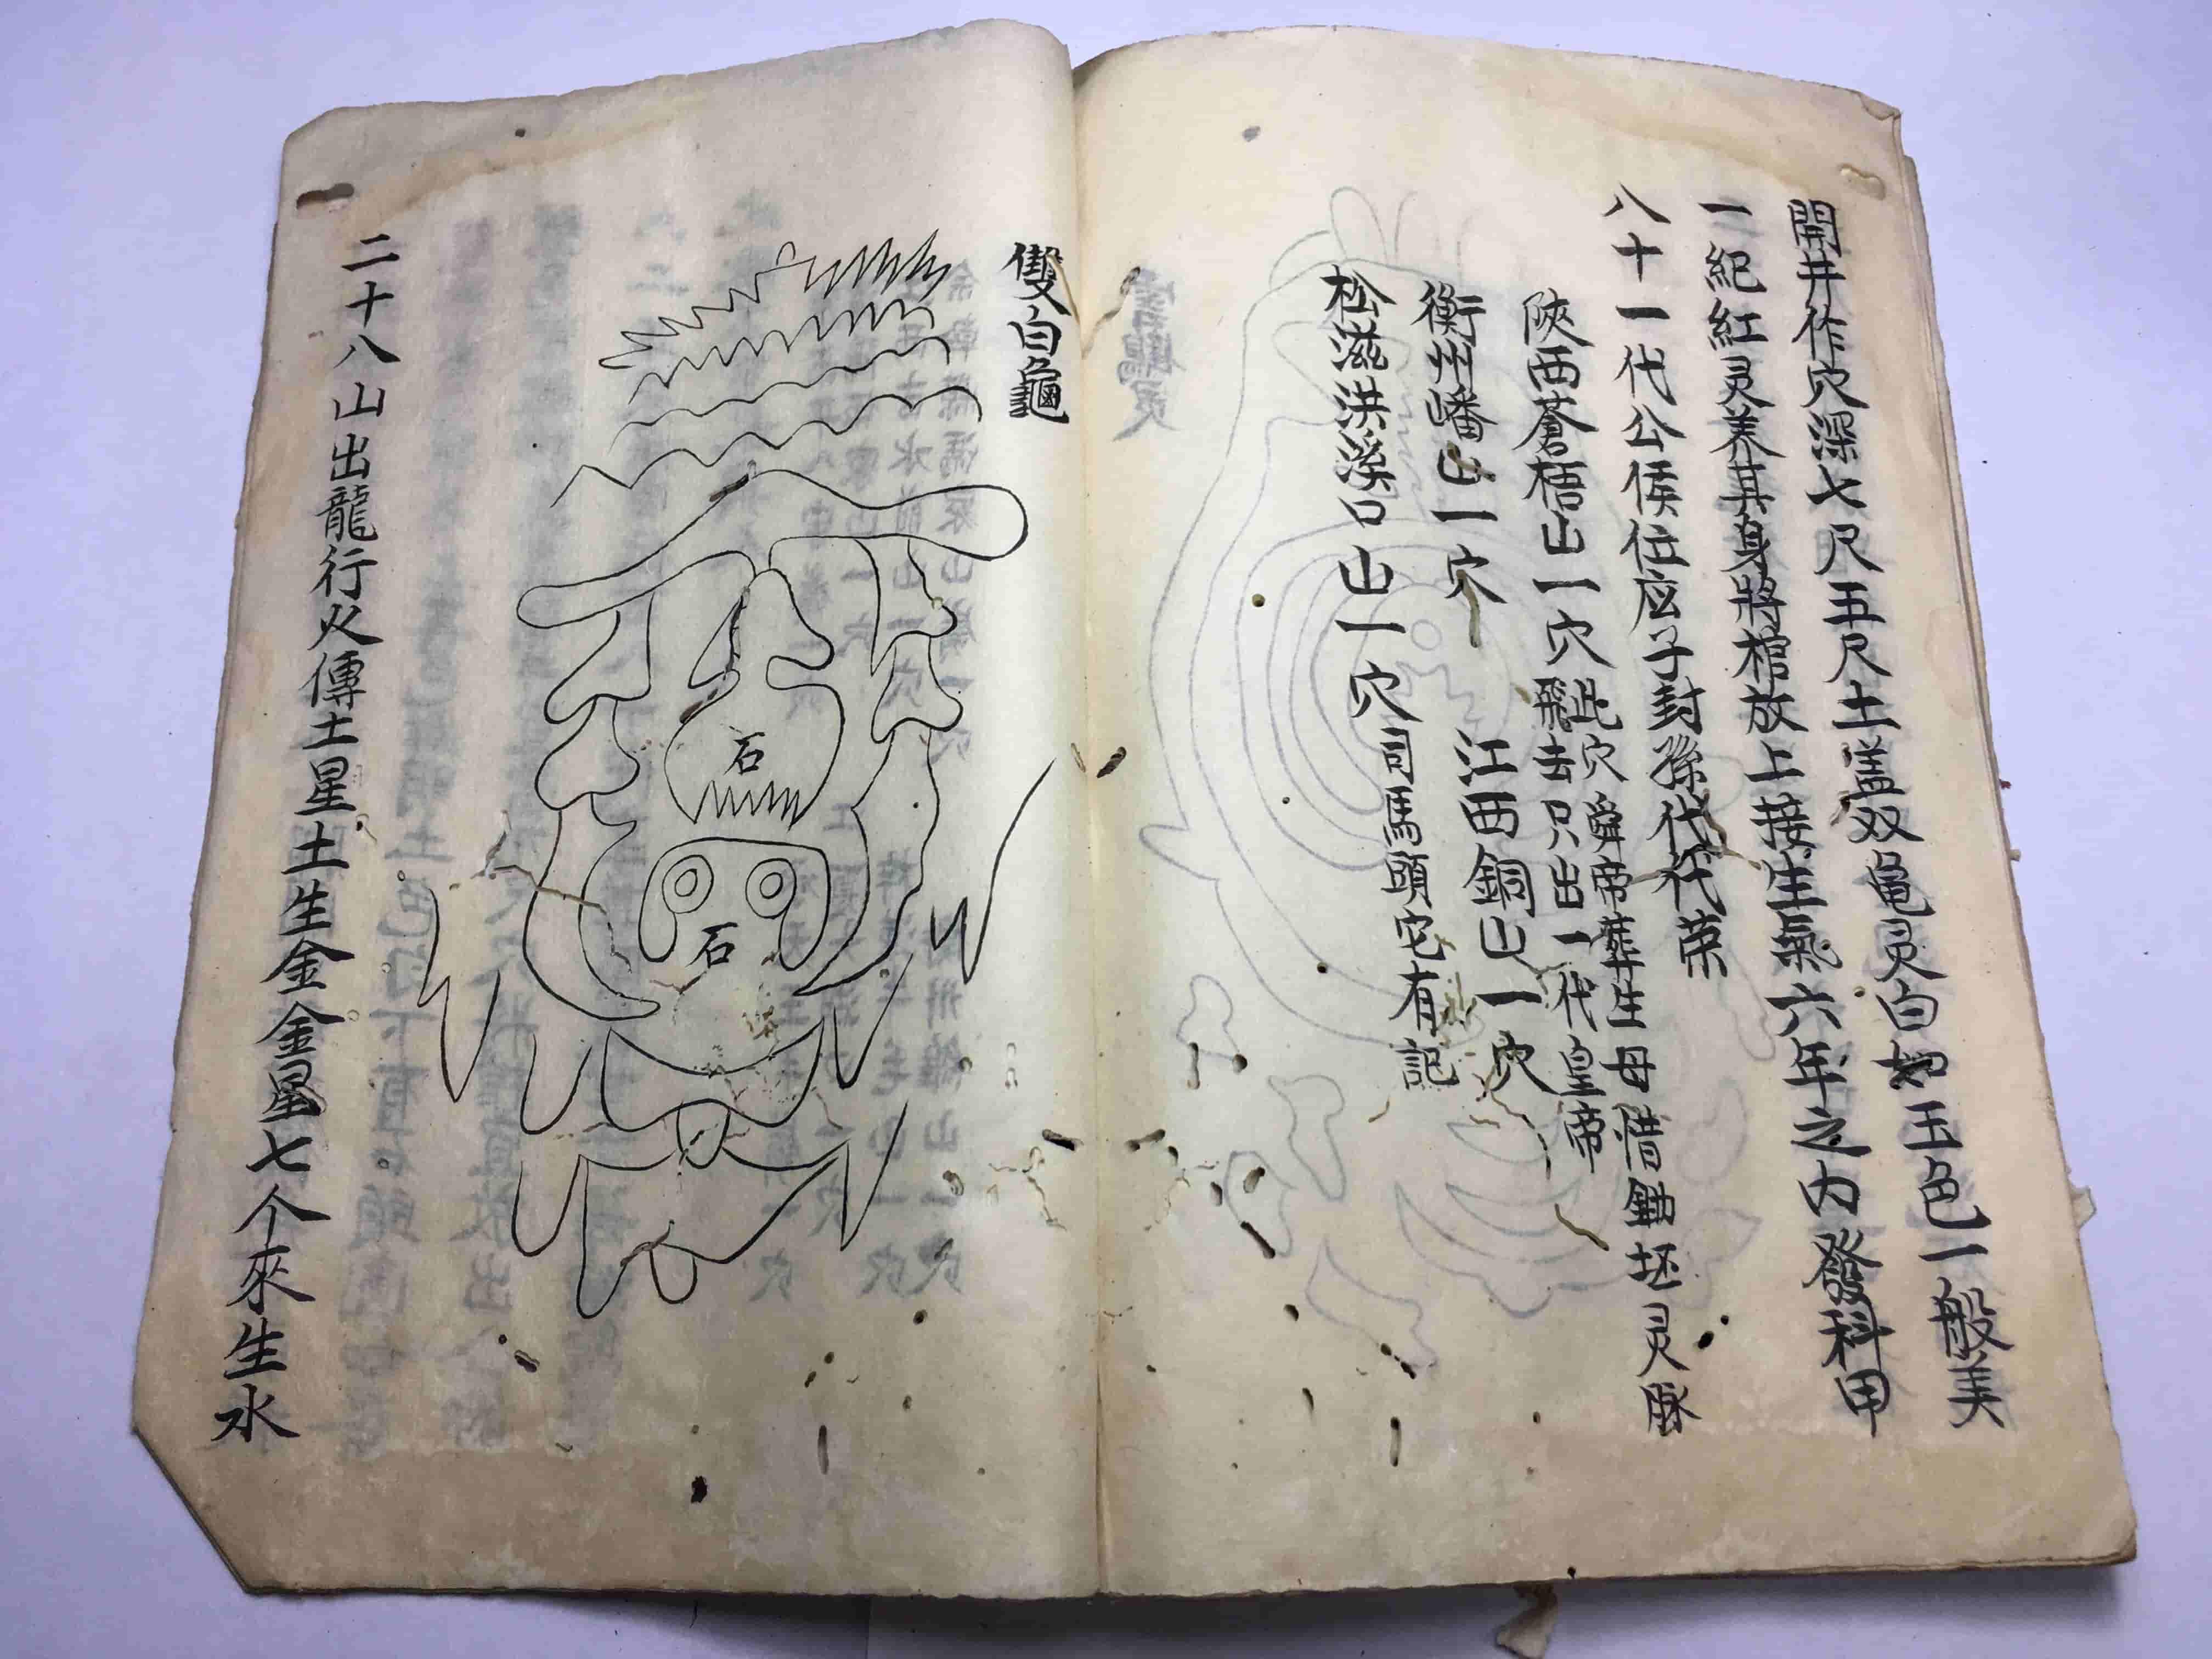 開井作穴深七尺五尺土盖双龜灵白如玉色一般美
一紀紅灵养其身將棺放上接生氣六年之内發科甲
八十一代公侯位应子封孫代代荣
陝西蒼梧山一穴此穴舜帝葬生母惜鋤坯灵脉
飛去只出一代皇帝
衡州嶓山一穴 江西銅山一穴
松滋洪溪口山一穴司馬頭陀有記
雙白龜
石
石
二十八山出龍行火傳土星土生金金星七个來生水